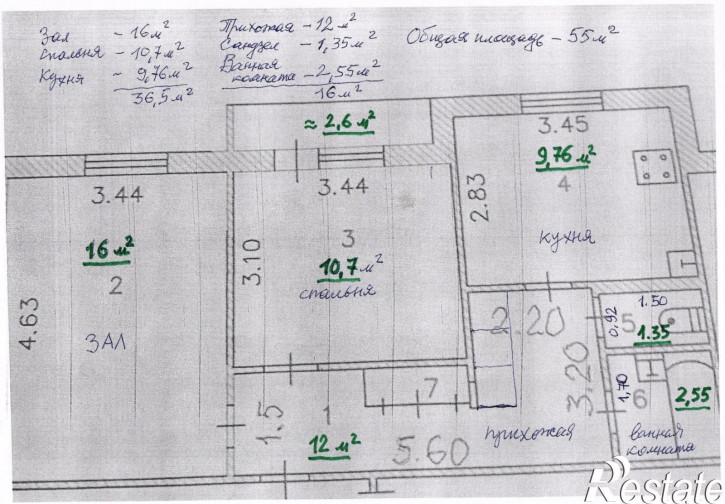 Зал - 16 м²
спальня - 10,7 м²
Кухня - 9,76 м²
36,5 м²
Прихожая - 12 м²
Санузел - 1,35 м²
Ванная
комната - 2,55 м²
16 м²
Общая площадь - 55 м²
≈ 2,6 м²
3.45
9,76 м²
4
2.83
кухня
3.44
16 м²
2
4.63
ЗАЛ
3.44
3.10
3
10,7 м²
спальня
2.20
1.50
0.92
5
1.35
3.20
1,70
6
2,55
ванная
комната
7
1.5
1
12 м²
5.60
прихожая
Restate